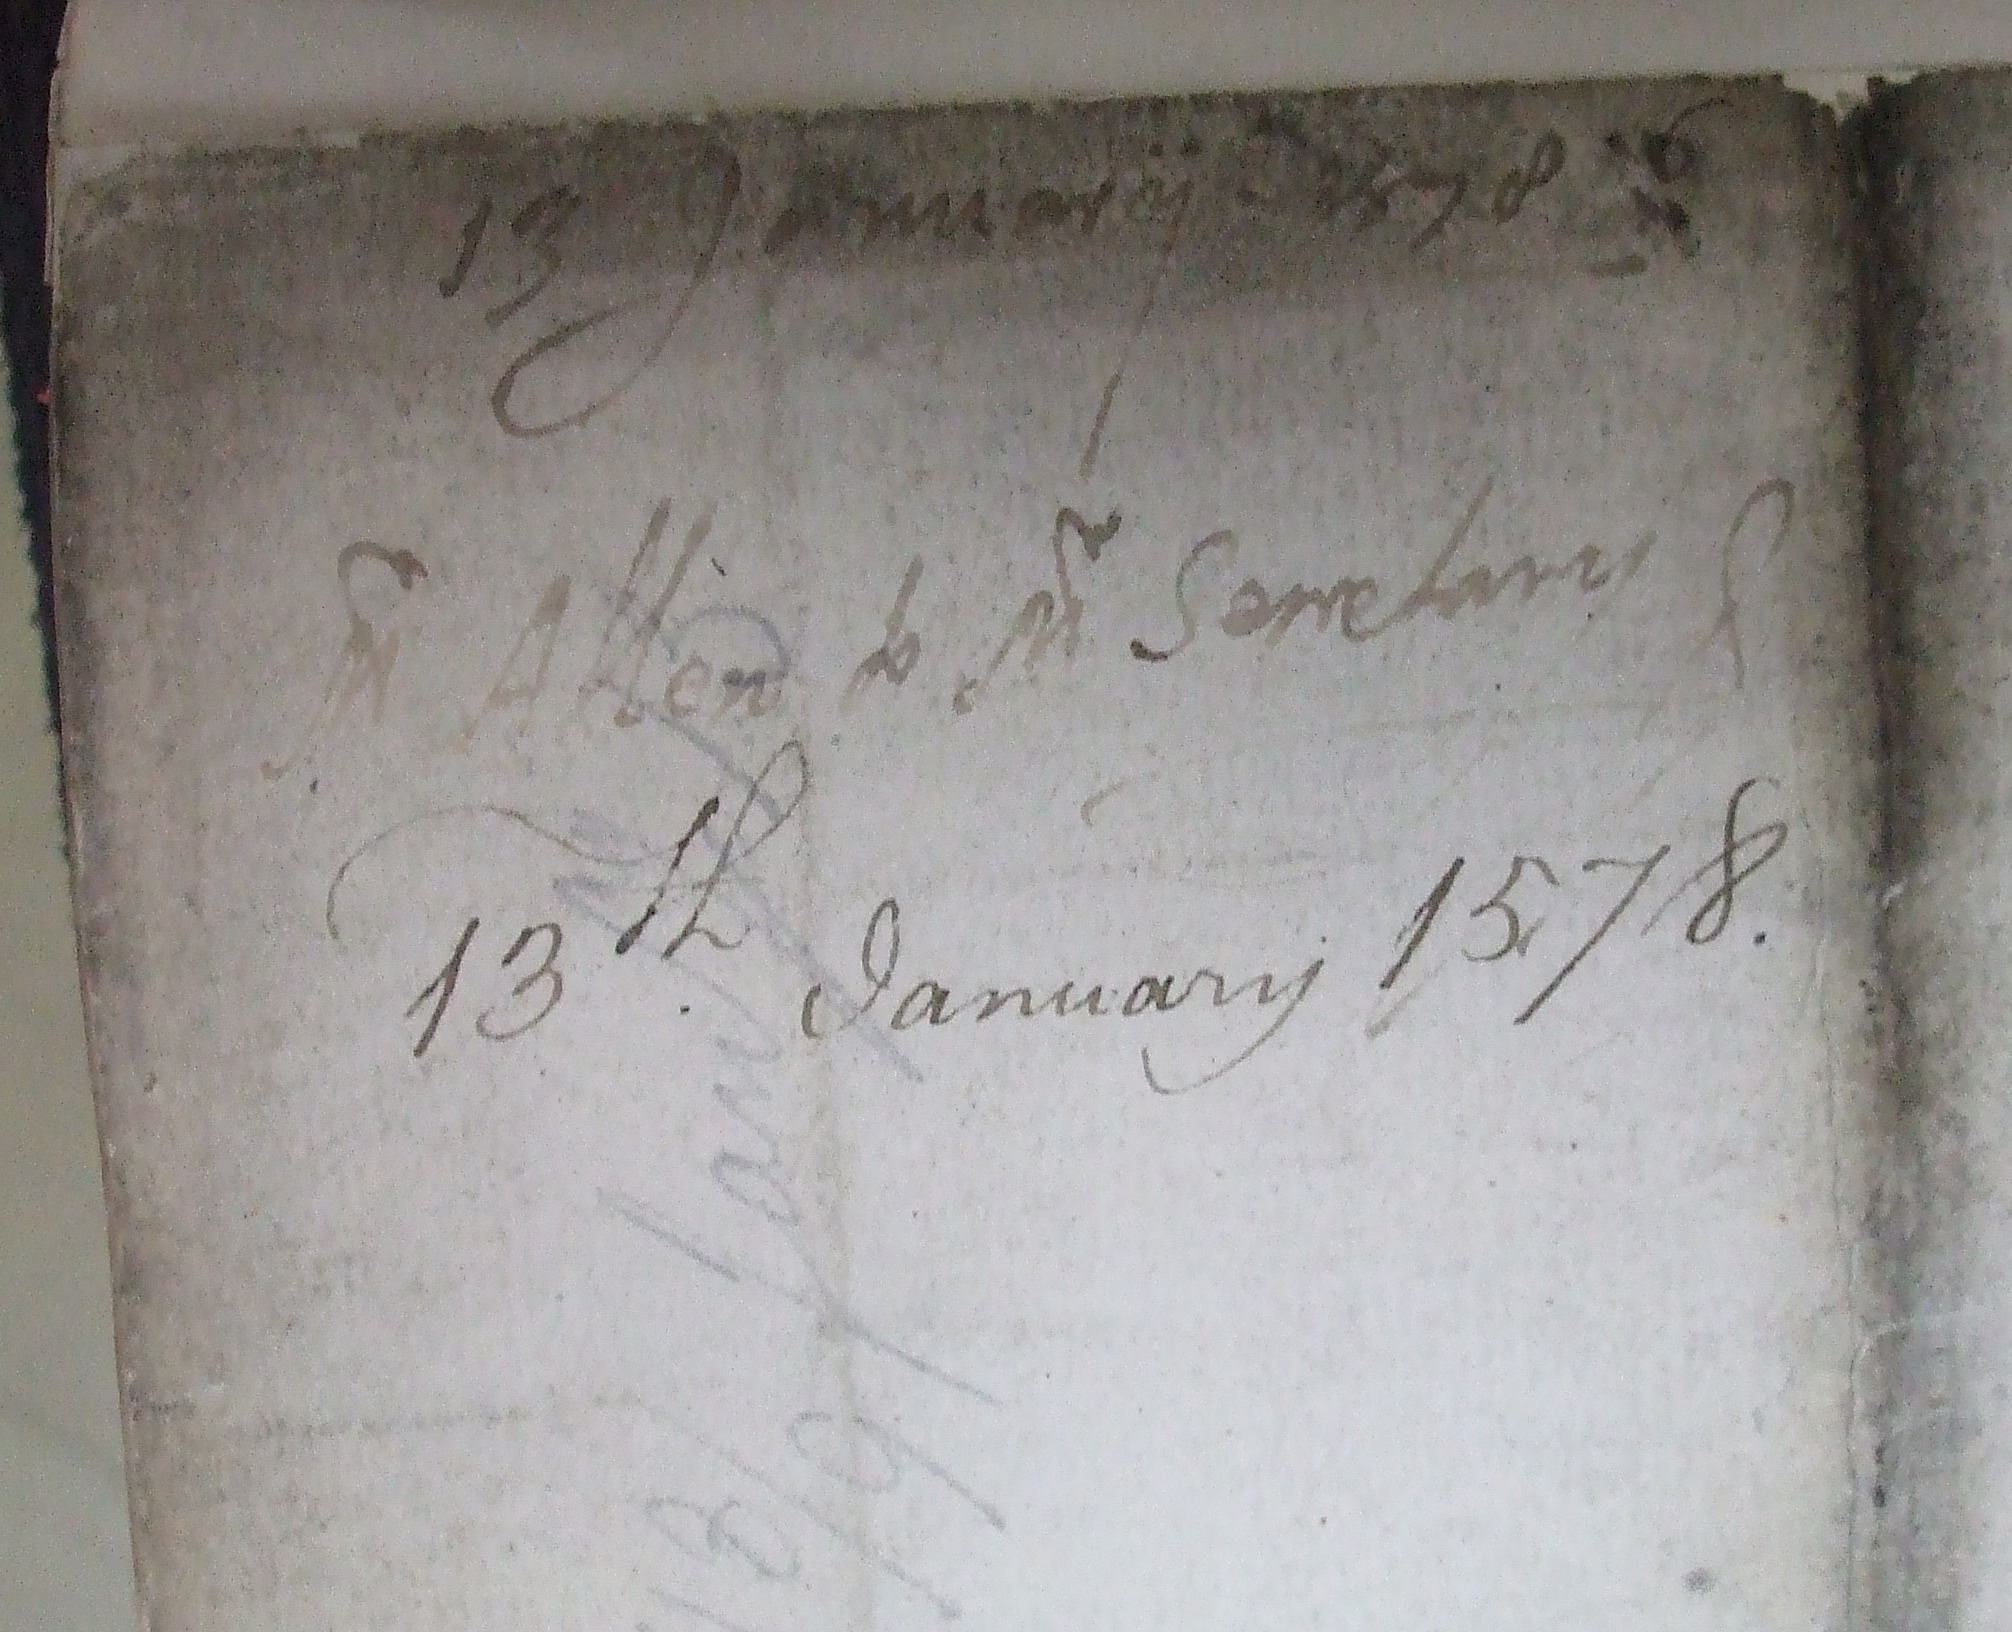 13 January 1578
Mr Allen to Mr Secretary
13th. January 1578.